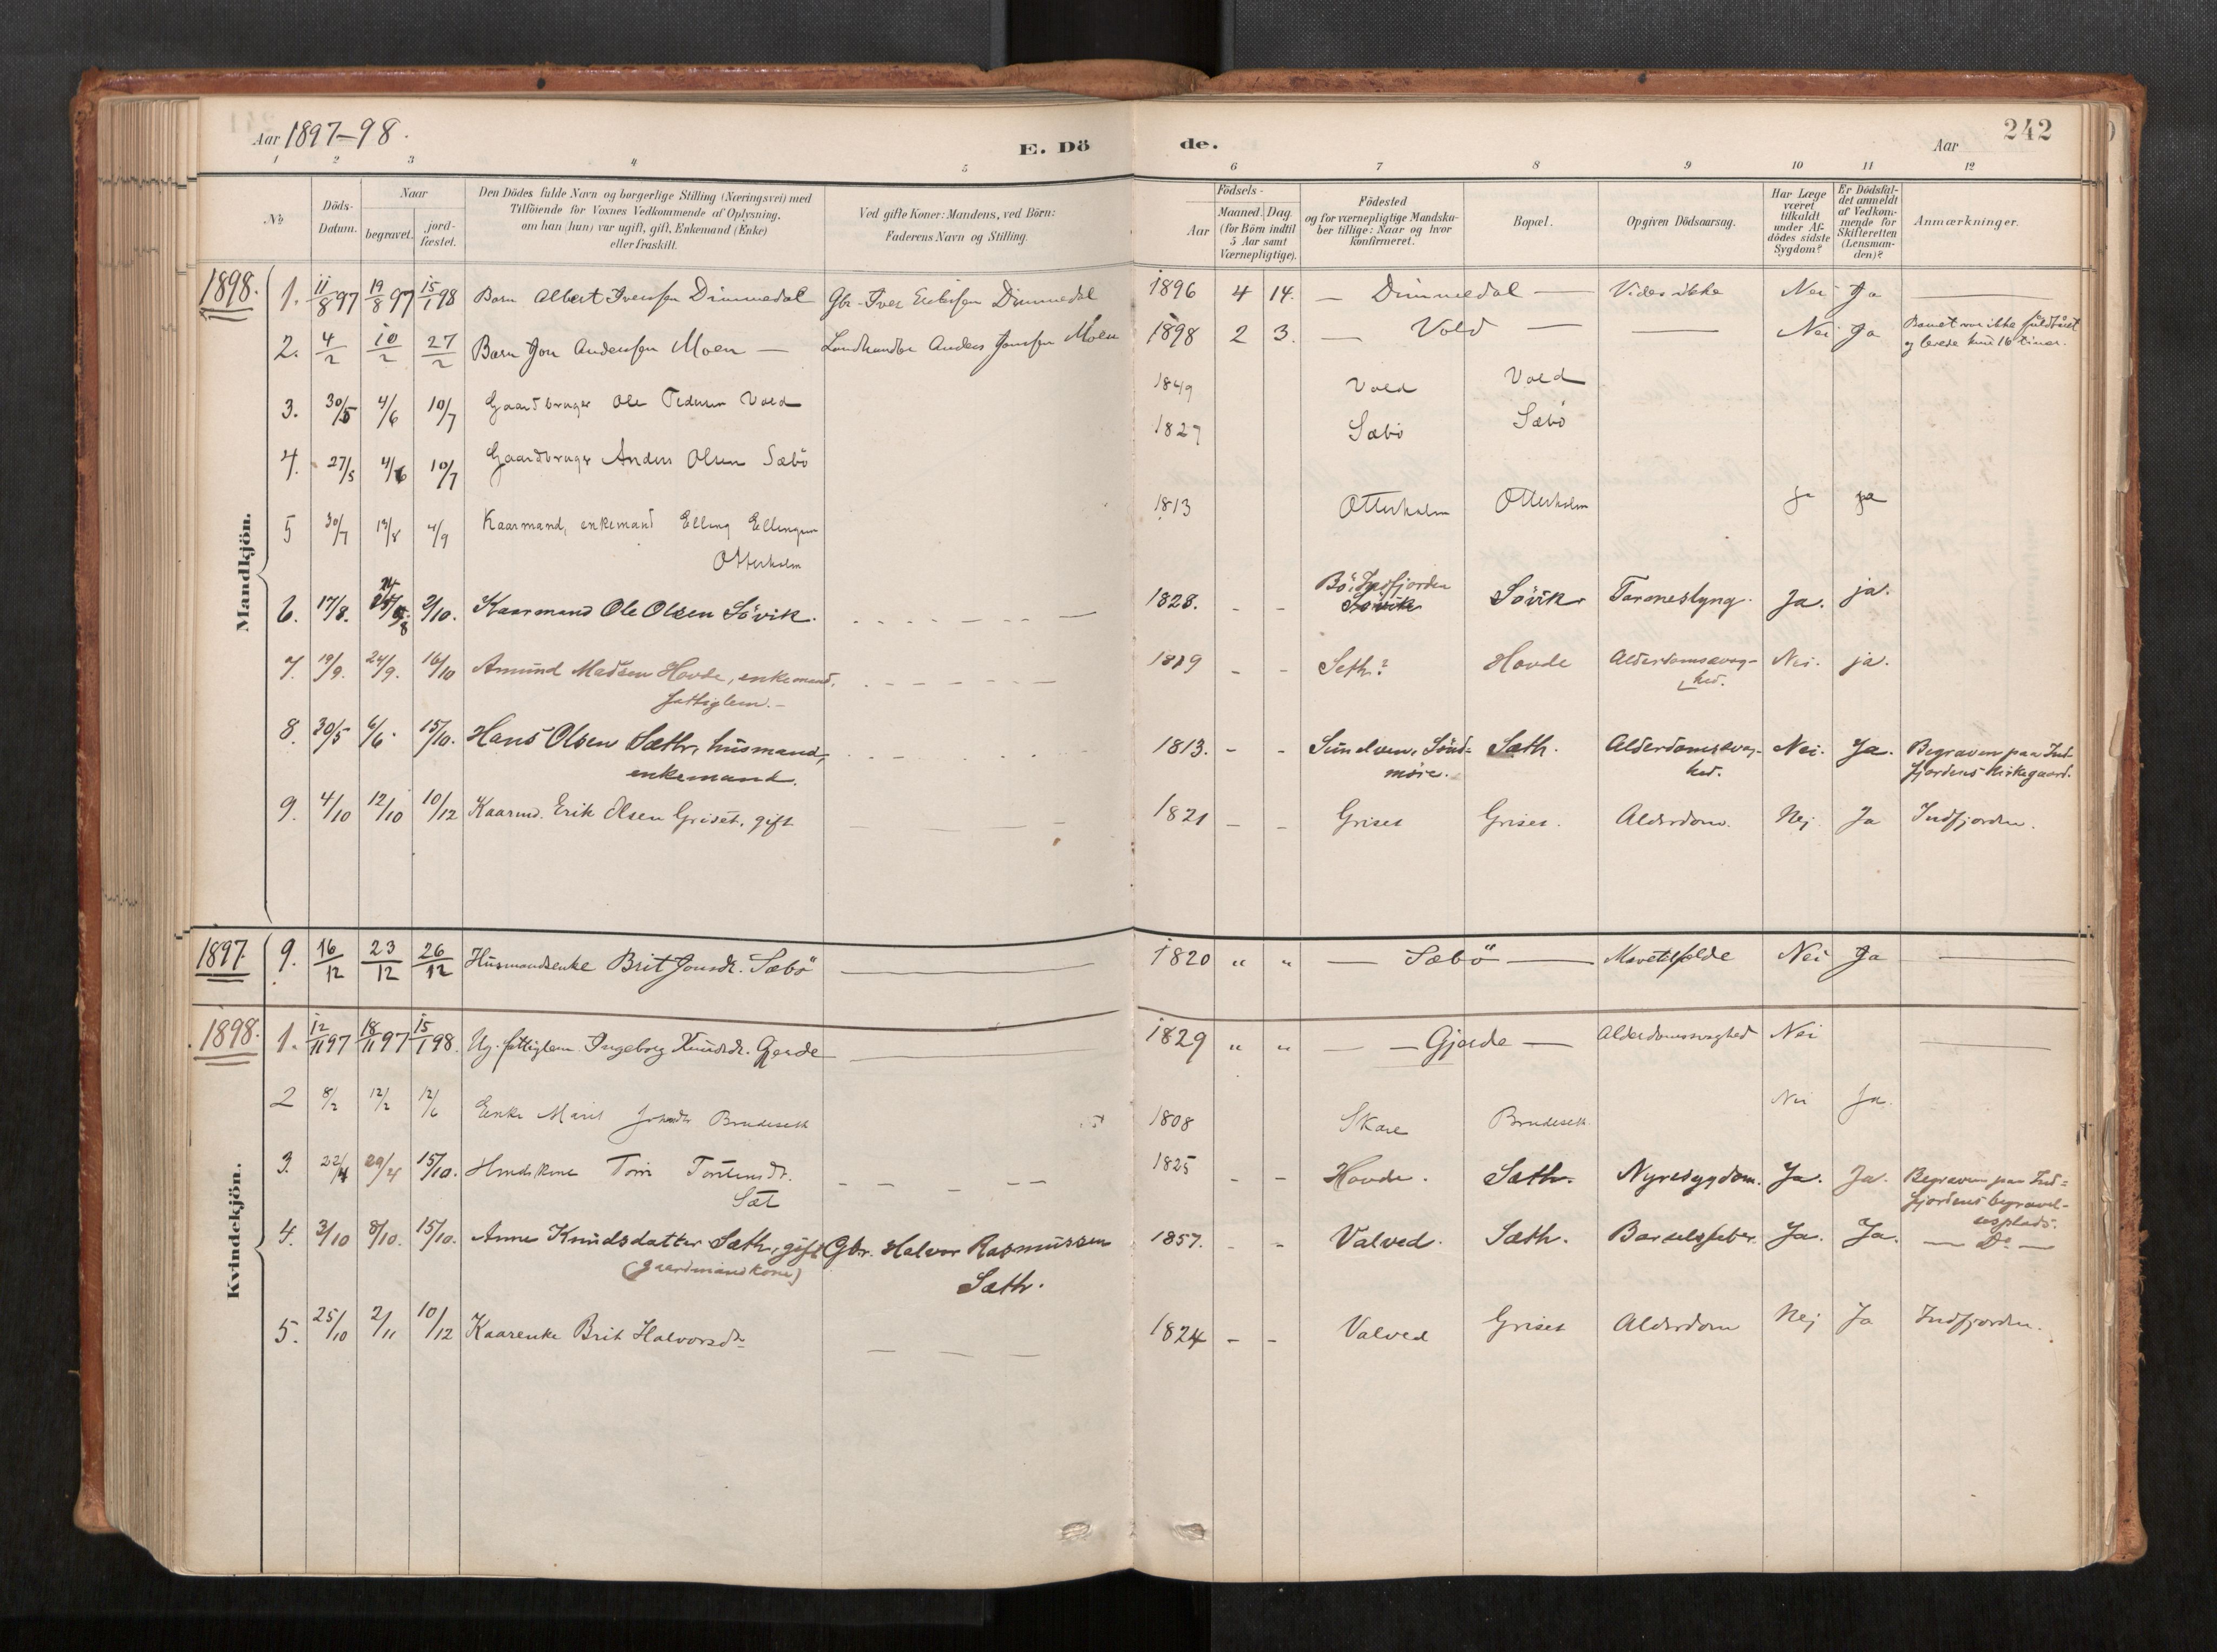 Aar 1897-98. E. Dö de. Aar 242
1 2 3 4 5 6 7 8 9 10 11 12
No Döds-Datum. Naar begravet. jord-fæstet. Den Dödes fulde Navn og borgerlige Stilling (Næringsvei) med Tilföiende for Voxnes Vedkommende af Oplysning, om han (hun) var ugift, gift, Enkemand (Enke) eller fraskilt. Ved gifte Koner: Mandens, ved Börn: Faderens Navn og Stilling. Födsels- Aar Maaned. Dag. (for Börn indtil 5 Aar samt Værnepligtige). Födested og for værnepligtige Mandskaber tillige: Naar og hvor konfirmeret. Bopæl. Opgiven Dödsaarsag. Har Læge været tilkaldt under Afdödes sidste Sygdom? Er Dödsfaldet anmeldt af Vedkommende for Skifteretten (Lensmanden)? Anmærkninger.
Mandkjön.
1898. 1. 11/8 97 19/8 97 15/1 98 Barn Albert Iversen Dimmedal Gbr. Iver Eriksen Dimmedal 1896 4 14. — Dimmedal — Vides ikke Nei Ja —
2. 4/2 10/2 27/2 Barn Jon Andersen Moen — Landhandler Anders Jonsen Moen 1898 2 3. — Vold — — Nei Ja Barnet var ikke fuldbåret
og levede kun 16 timer.
3. 30/5 4/6 10/7 Gaardbruger Ole Pedersen Vold 1849 Vold Vold
4. 27/5 4/6 10/7 Gaardbruger Anders Olsen Sæbö 1827 Sæbö Sæbö
5 30/7 13/8 4/9 Kaarmand, enkemand Elling Ellingsen 1813 Otterholm Otterholm ja ja
Otterholm
6. 17/8. 24/8 2/10. Kaarmand Ole Olsen Sövik. 1828. - - Bö i Indfjorden Sövik Sövik Tarmeslyng. Ja. ja.
7. 19/9. 24/9. 16/10 Amund Madsen Hovde, enkemand, 1819 - - Seth? Hovde Alderdomssvag- Nei. ja.
fattiglem. - hed.
8. 30/5 6/6. 15/10. Hans Olsen Sæth, husmand, 1813. - - Sunelven, Sönd- Sæth. Alderdomssvag- Nei. Ja. Begraven paa Ind-
enkemand. möre. hed. fjordens Kirkegaard.
9. 4/10 12/10 10/12 Kaarmd. Erik Olsen Griset, gift 1821 - - Griset Griset. Alderdom. Nej Ja Indfjorden.
Kvindekjön.
1897. 9. 16/12 23/12 26/12 Husmandsenke Brit Jonsdr. Sæbö — 1820 " " — Sæbö — Mavetilfælde Nei Ja —
1898. 1. 12/11 97 18/11 97 15/1 98. Ug. fattiglem Ingeborg Knudsdr. Gjerde — 1829 " " — Gjerde — Alderdomssvaghed Nei —
2 8/2 12/2 12/6 Enke Marit Brudeseth 1808 Skare Brudeseth Nei Ja
3. 22/4 29/4 15/10. Torstensdr. 1825 - - Hovde. Sæth. Nyresygdom. Ja. Ja. Begraven paa Ind-
Sæt fjordens begravel-
sesplads.
4. 3/10 8/10. 15/10. Anne Knudsdatter Sæth, gift Gbr. Halvor Rasmussen 1857. - - Valved. Sæth. Barselsfeber. Ja. Ja. — Do —
(gaardmandkone) Sæth.
5. 25/10 2/11 10/12 Kaarenke Brit Halvorsdr 1824 - - Valved Griset Alderdom Nej Ja Indfjorden.